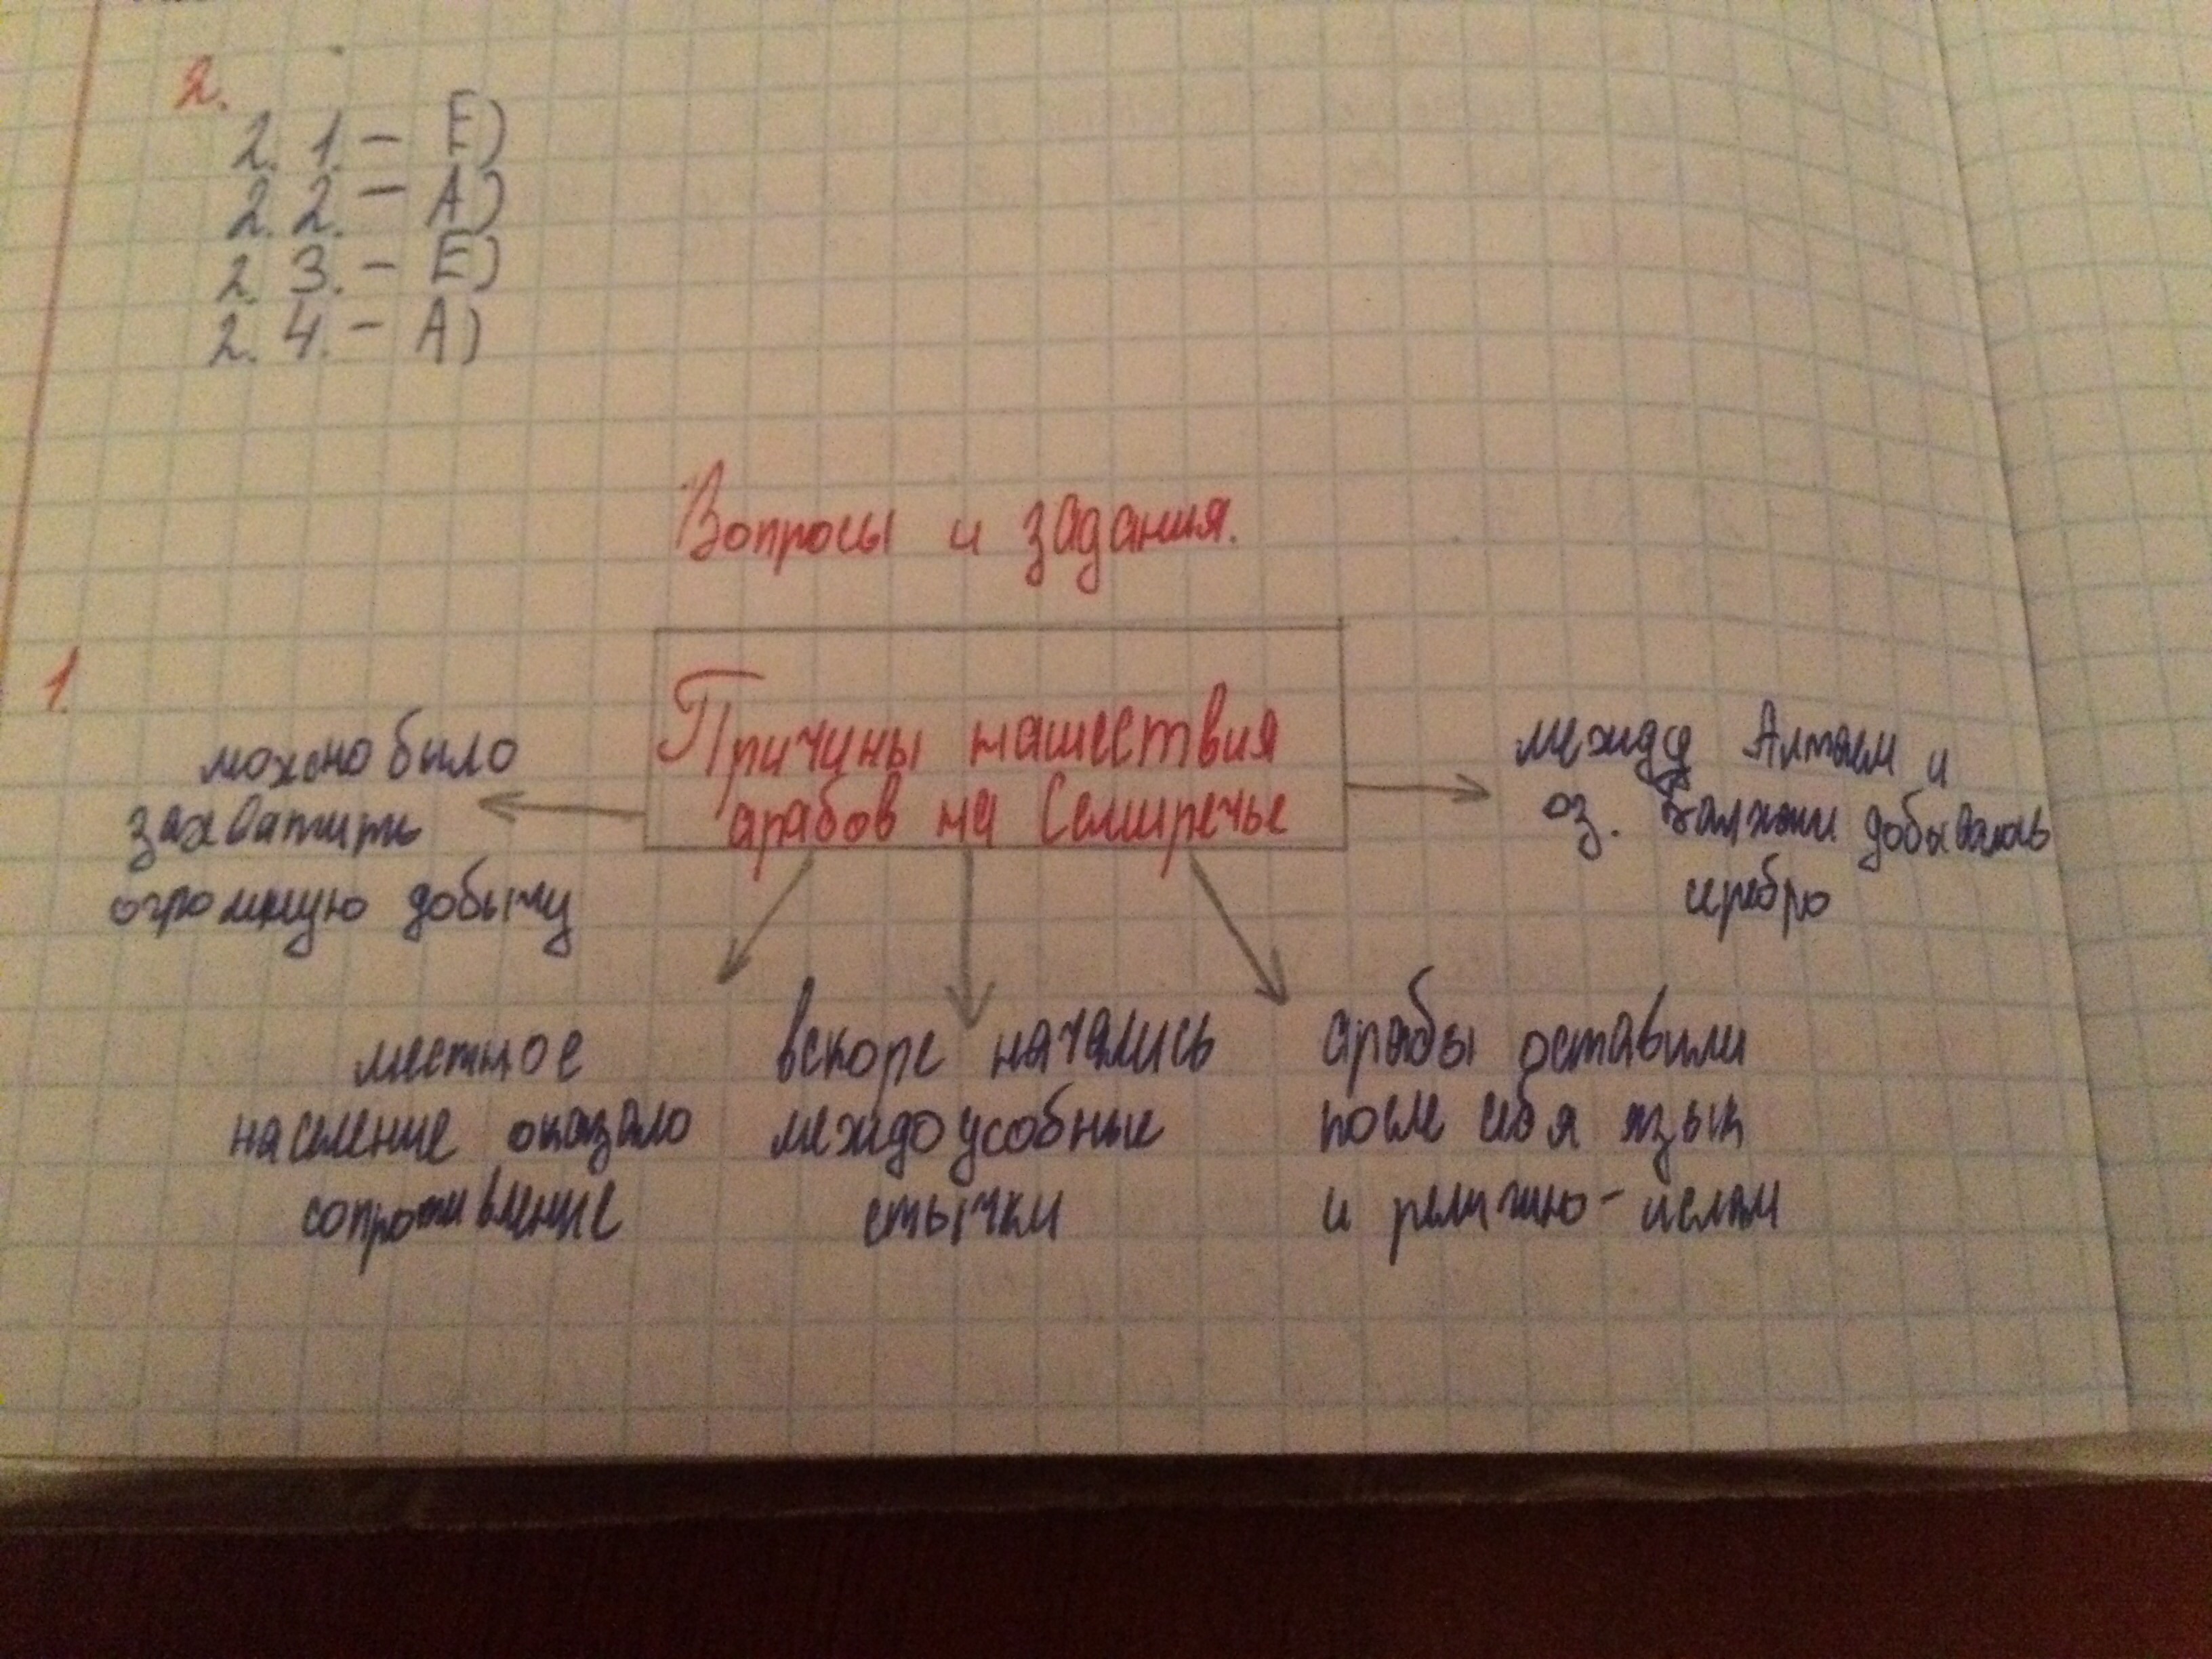 2.
2. 1. - E)
2. 2. - A)
2. 3. - E)
2. 4. - A)
Вопросы и задания.
1.
Причины нашествия
арабов на Семиречье
можно было
захватить
огромную добычу
местное
население оказало
сопротивление
вскоре начались
междоусобные
стычки
арабы оставили
после себя язык
и религию - ислам
между Алтаем и
оз. Балхаш добывалось
серебро